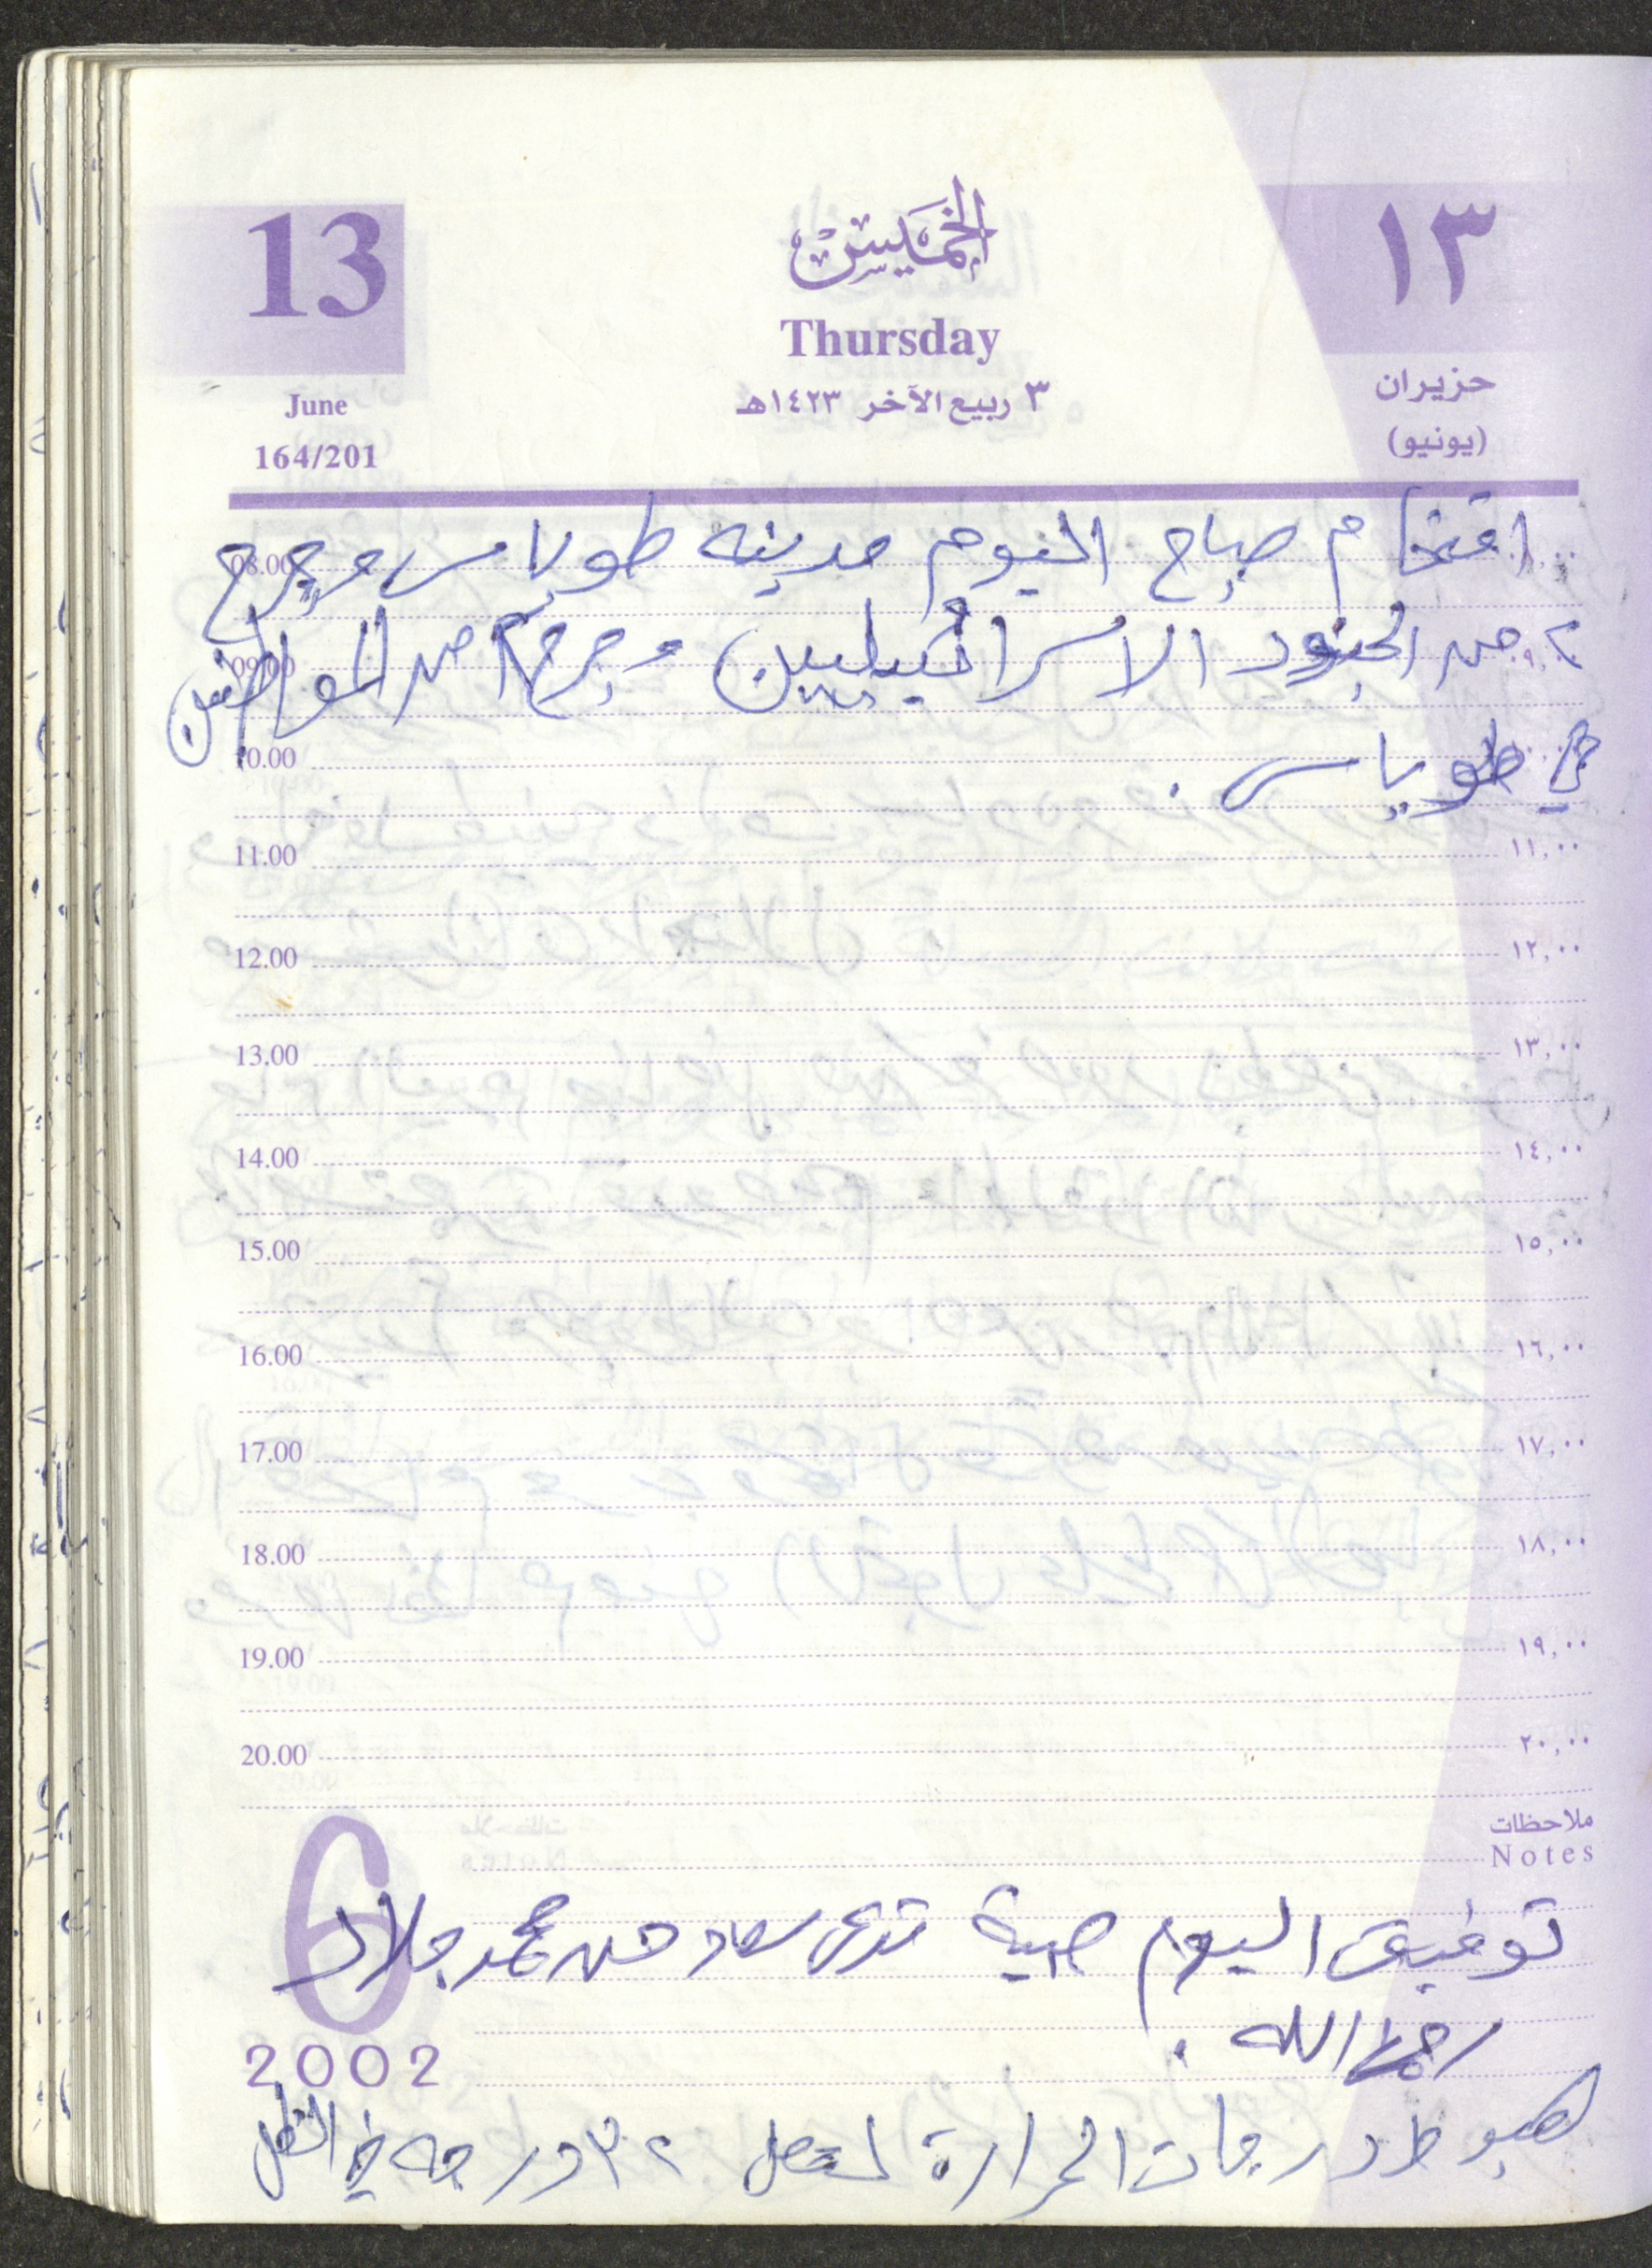 13
الخميس
١٣
Thursday
June
٣ ربيع الآخر ١٤٢٣هـ
حزيران
164/201
(يونيو)
اقتحام صباح اليوم مدينه طوباس وجرح
08.00
٢ من الجنود الاسرائيليين وجرح من المواطنين
09.00 ٩,٠٠
في طوباس.
10.00
11.00 ١١,٠٠
12.00 ١٢,٠٠
13.00 ١٣,٠٠
14.00 ١٤,٠٠
15.00 ١٥,٠٠
16.00 ١٦,٠٠
17.00 ١٧,٠٠
18.00 ١٨,٠٠
19.00 ١٩,٠٠
20.00 ٢٠,٠٠
ملاحظات
Notes
6
توفيق اليوم صبية محمد جلال
رحمها الله.
2002
هبوط درجات الحرارة لتصل ٣٢ درجه في الظل